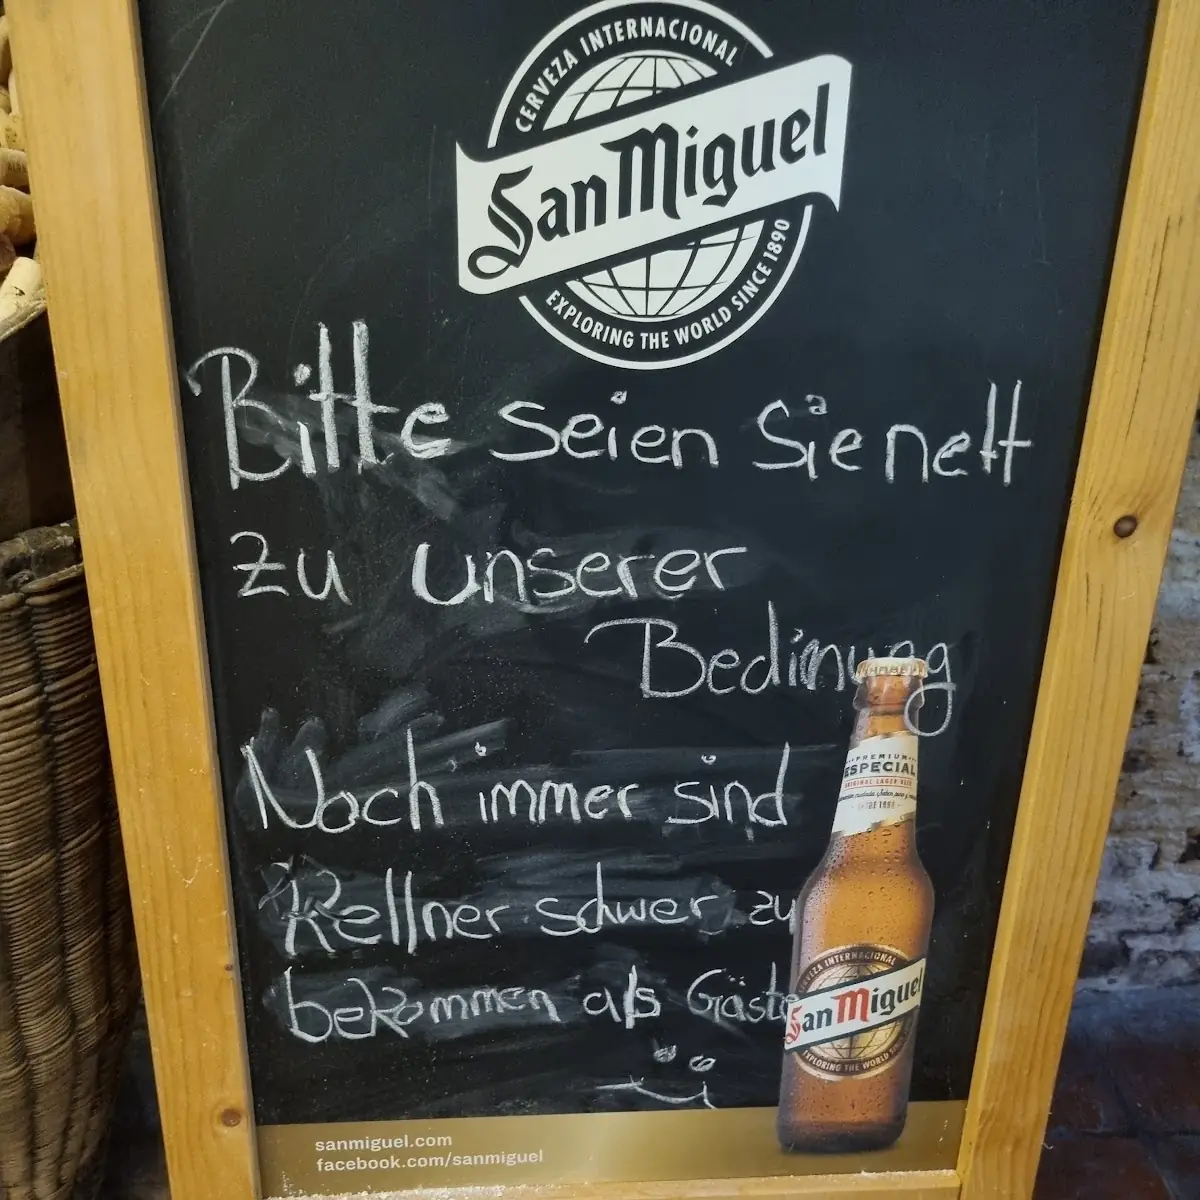 CERVEZA INTERNACIONAL
San Miguel
EXPLORING THE WORLD SINCE 1890
Bitte seien Sie nett
zu unserer
Bedinung
Noch immer sind
Kellner schwer zu
bekommen als Gäste
PREMIUM
ESPECIAL
ORIGINAL LAGER BEER
CERVEZA INTERNACIONAL
San Miguel
EXPLORING THE WORLD SINCE
sanmiguel.com
facebook.com/sanmiguel